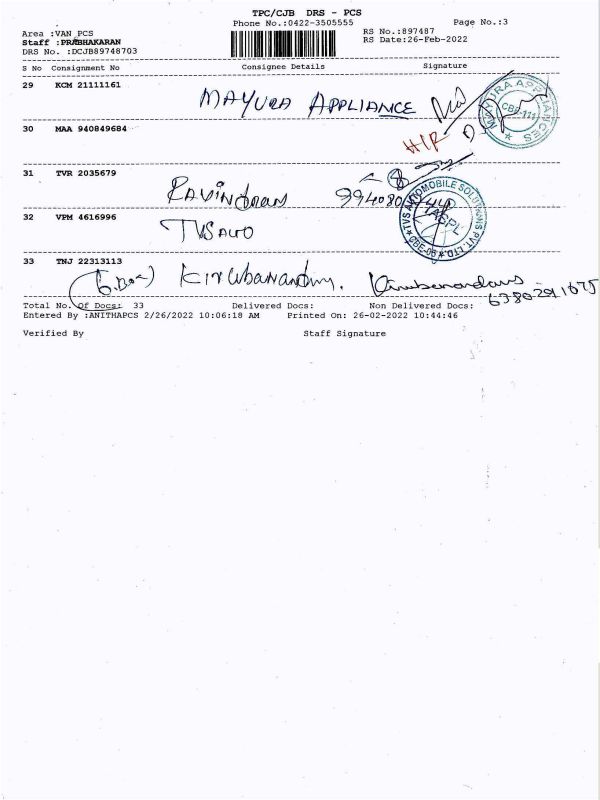 TPC/CJB DRS - PCS
Phone No.:0422-3505555 Page No.:3
Area :VAN_PCS RS No.:897487
Staff :PRABHAKARAN RS Date:26-Feb-2022
DRS No. :DCJB89748703
S No Consignment No Consignee Details Signature
29 KCM 21111161
MAYURA APPLIANCE
MAYURA APPLIANCES
CBE-111
30 MAA 940849684
H/R
31 TVR 2035679
Ravindran
TVS AUTOMOBILE SOLUTIONS PVT. LTD.
32 VPM 4616996
TVS Auto
33 TNJ 22313113
(6.Box) Kirubanandhy.
6380291675
Total No. Of Docs: 33 Delivered Docs: Non Delivered Docs:
Entered By :ANITHAPCS 2/26/2022 10:06:18 AM Printed On: 26-02-2022 10:44:46
Verified By Staff Signature